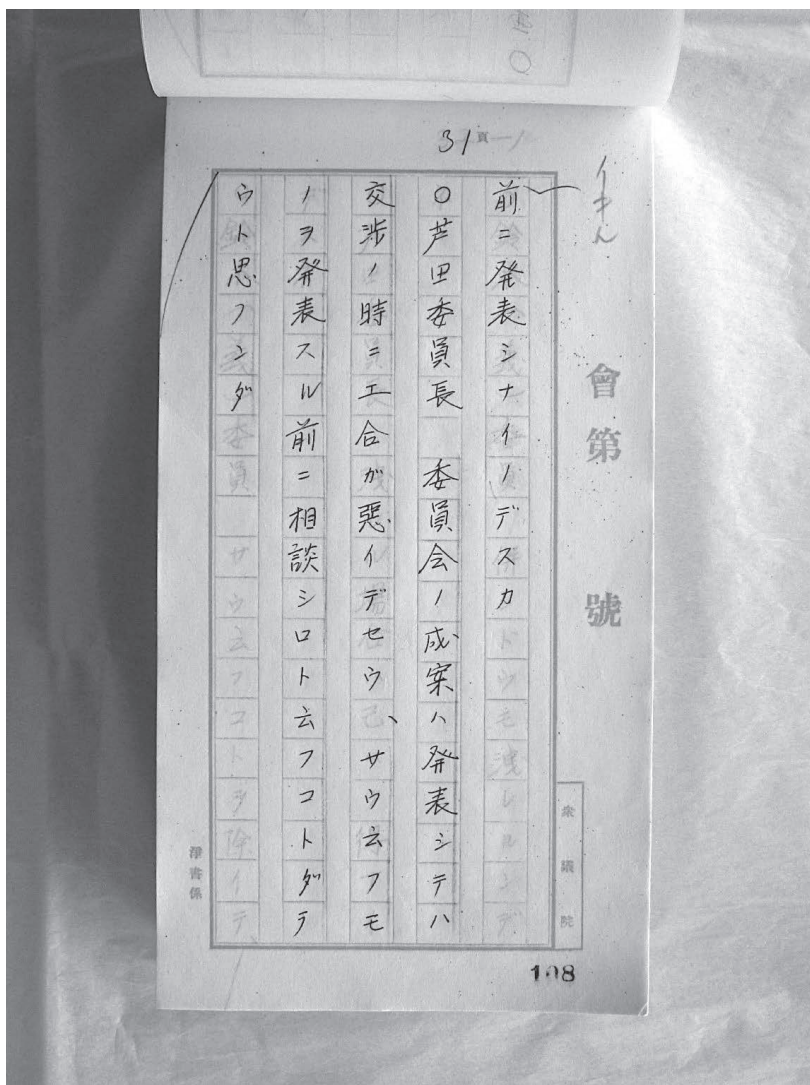 31頁
會第　　號
前ニ発表シナイノデスカ
○芦田委員長　委員会ノ成案ハ発表シテハ
交渉ノ時ニ工合ガ悪イデセウ、サウ云フモ
ノヲ発表スル前ニ相談シロト云フコトダラ
ウト思フンダ
衆議院
淨書係
108